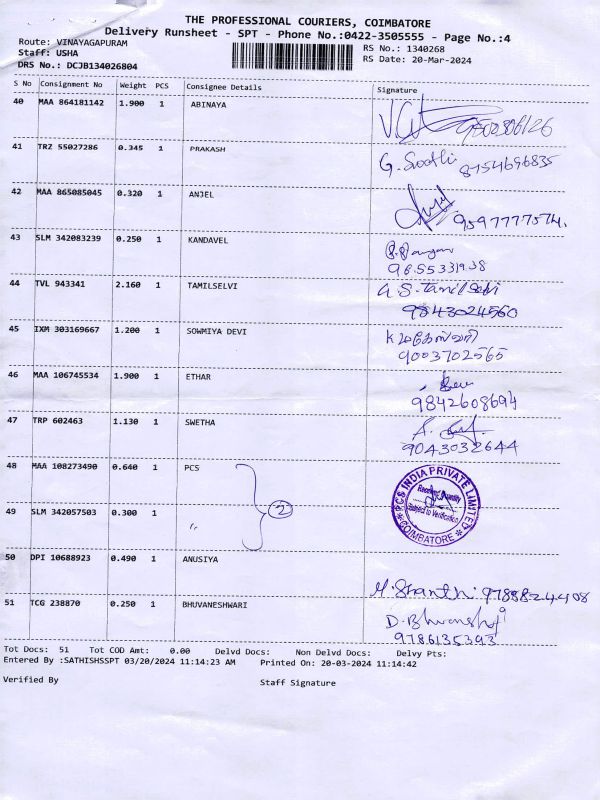 THE PROFESSIONAL COURIERS, COIMBATORE
Delivery Runsheet - SPT - Phone No.:0422-3505555 - Page No.:4
Route: VINAYAGAPURAM
RS No.: 1340268
Staff: USHA
RS Date: 20-Mar-2024
DRS No.: DCJB134026804
S No Consignment No Weight PCS Consignee Details Signature
40 MAA 864181142 1.900 1 ABINAYA
9500306126
41 TRZ 55027286 0.345 1 PRAKASH
8754696835
42 MAA 865085045 0.320 1 ANJEL
9597777574.
43 SLM 342083239 0.250 1 KANDAVEL
44 TVL 943341 2.160 1 TAMILSELVI
G.S.Tamil Selvi
9843024560
45 IXM 303169667 1.200 1 SOWMIYA DEVI
9003702565
46 MAA 106745534 1.900 1 ETHAR
9842608694
47 TRP 602463 1.130 1 SWETHA
9043032644
48 MAA 108273490 0.640 1 PCS
PCS INDIA PRIVATE LIMITED
Subject to Verification
* COIMBATORE *
49 SLM 342057503 0.300 1 〃
2
50 DPI 10688923 0.490 1 ANUSIYA
M. Shanthi
51 TCG 238870 0.250 1 BHUVANESHWARI
9786135393
Tot Docs: 51 Tot COD Amt: 0.00 Delvd Docs: Non Delvd Docs: Delvy Pts:
Entered By :SATHISHSSPT 03/20/2024 11:14:23 AM Printed On: 20-03-2024 11:14:42
Verified By Staff Signature